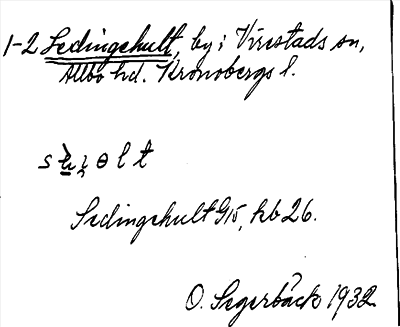 1-2 Sedingehult, by i Virestads sn,
Allbo hd. Kronobergs l.
Sedingehult G15, kb 26.
O. Segerbäck 1932.